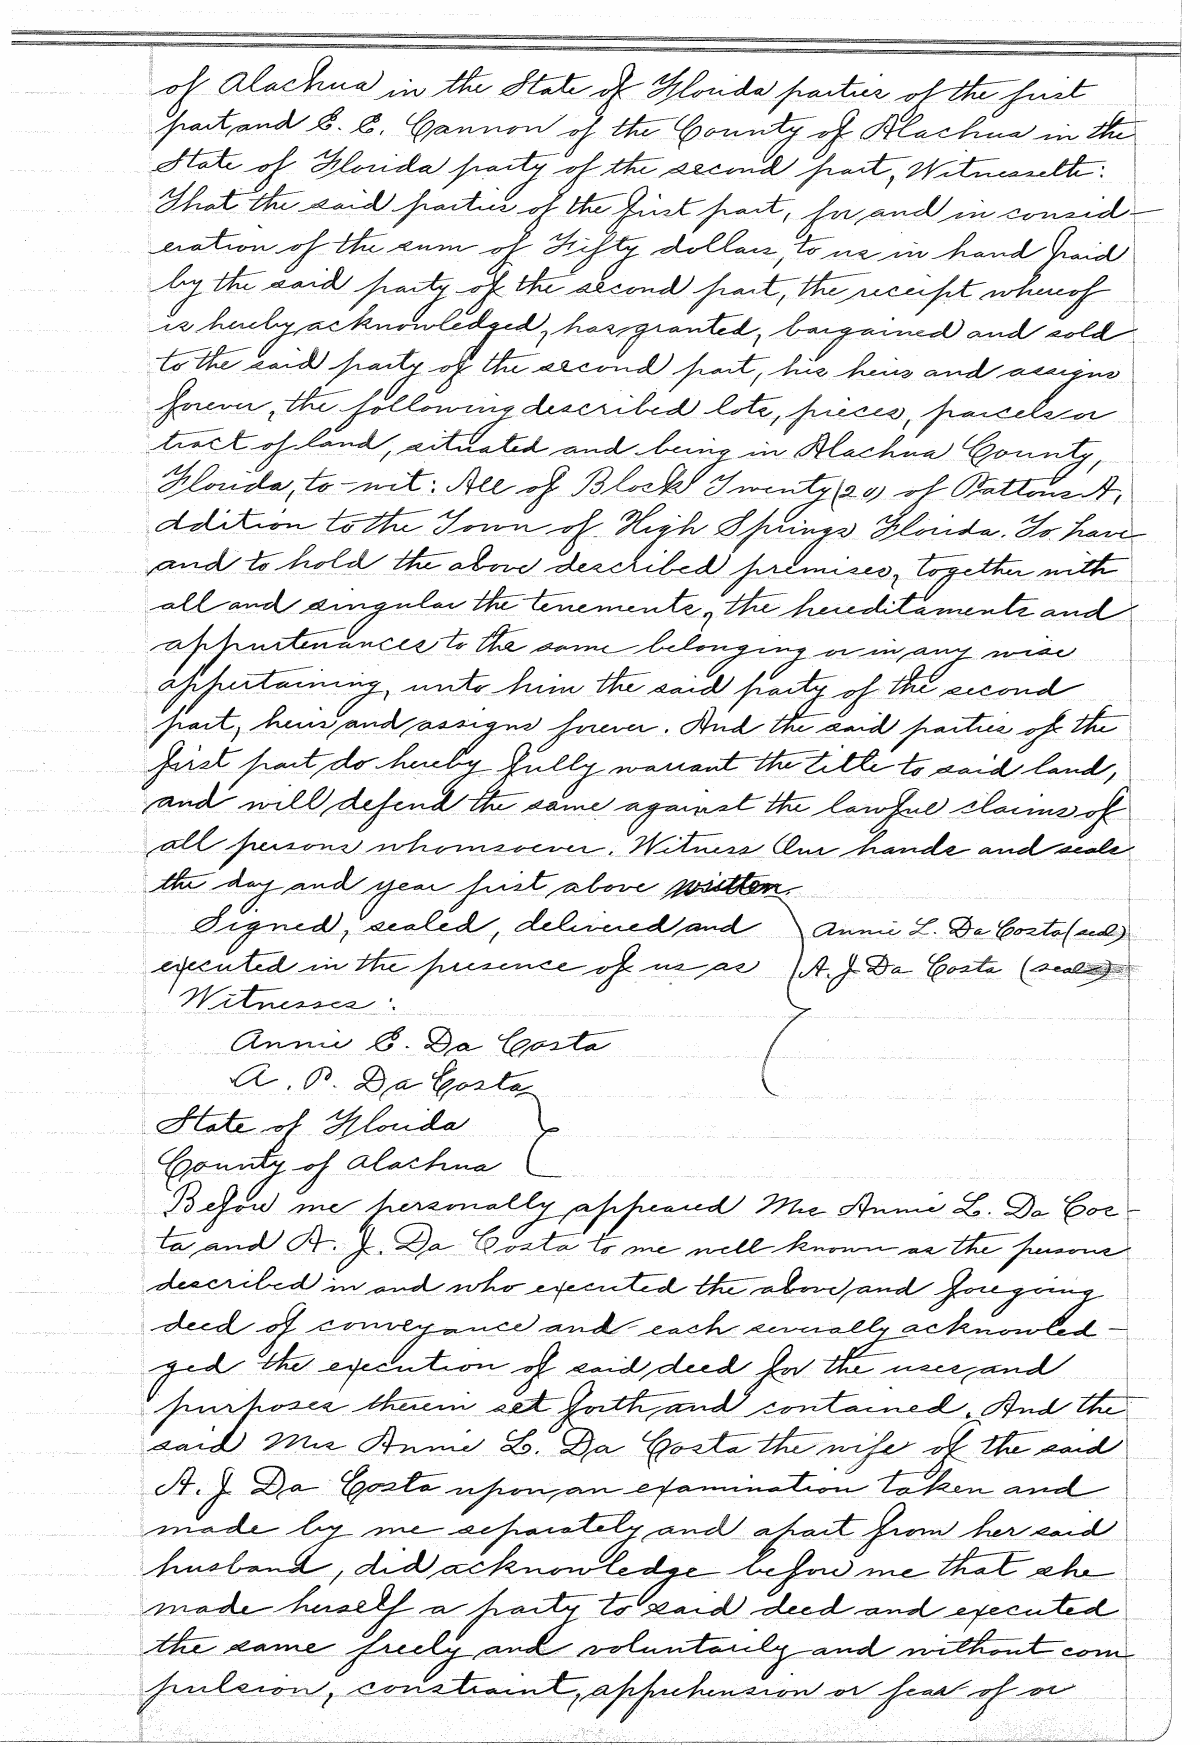 of Alachua in the State of Florida parties of the first
part, and E. E. Cannon of the County of Alachua in the
State of Florida party of the second part, Witnesseth:
That the said parties of the first part, for and in consid-
eration of the sum of Fifty dollars, to us in hand paid
by the said party of the second part, the receipt whereof
is hereby acknowledged, has granted, bargained and sold
to the said party of the second part, his heirs and assigns
forever, the following described lots, pieces, parcels or
tract of land, situated and being in Alachua County,
Florida, to-wit: All of Block Twenty (20) of Pattons A,
ddition to the Town of High Springs Florida. To have
and to hold the above described premises, together with
all and singular the tenements, the hereditaments and
appurtenances to the same belonging or in any wise
appertaining, unto him the said party of the second
part, heirs and assigns forever. And the said parties of the
first part do hereby fully warrant the title to said land,
and will defend the same against the lawful claims of
all persons whomsoever. Witness Our hands and seals
the day and year first above written.
Signed, sealed, delivered and Annie L. Da Costa (seal)
executed in the presence of us as A. J. Da Costa (seal)
Witnesses:
Annie E. Da Costa
A. P. Da Costa
State of Florida
County of Alachua
Before me personally appeared Mrs Annie L. Da Cos-
ta, and A. J. Da Costa to me well known as the persons
described in and who executed the above and foregoing
deed of conveyance and each severally acknowled-
ged the execution of said deed for the uses and
purposes therein set forth and contained. And the
said Mrs Annie L. Da Costa the wife of the said
A. J Da Costa upon an examination taken and
made by me separately and apart from her said
husband, did acknowledge before me that she
made herself a party to said deed and executed
the same freely and voluntarily and without com
pulsion, constraint, apprehension or fear of or